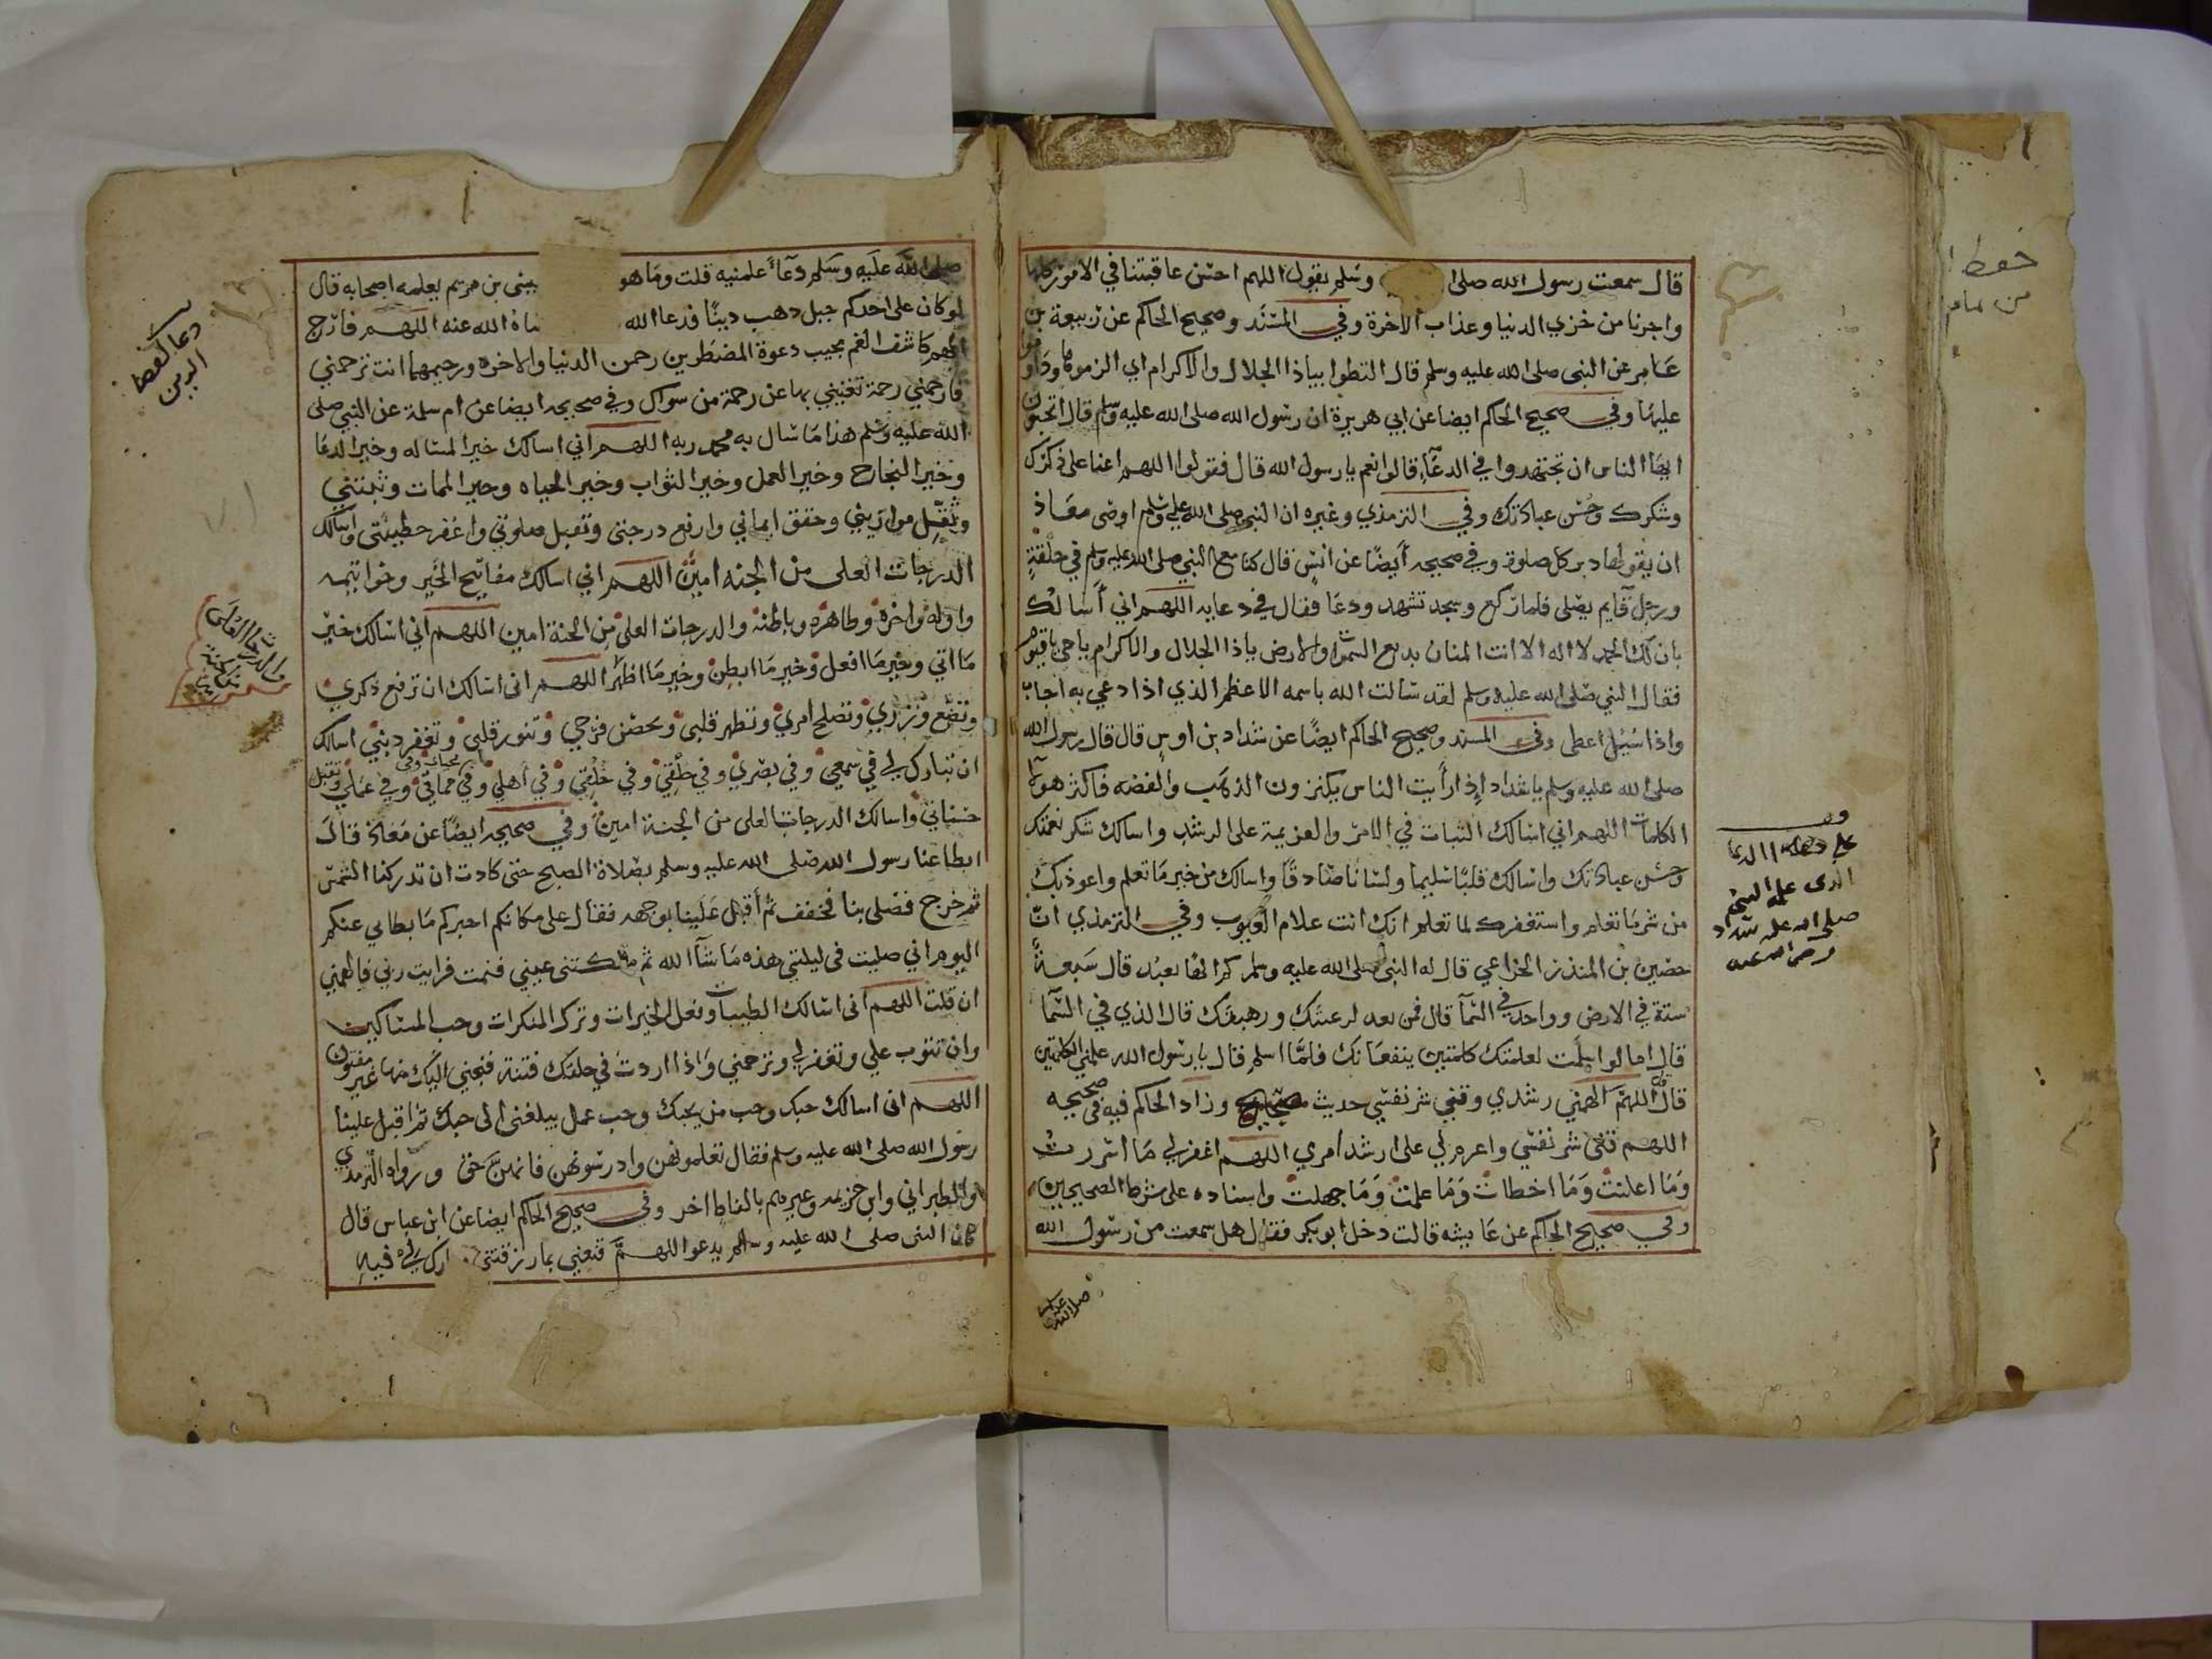 قال سمعت رسول الله صلى وسلم يقول اللهم احسن عاقبتنا في الامور كلها
واجرنا من خزي الدنيا وعذاب الاخرة وفي المسند وصحيح الحاكم عن ربيعة بن
عامر عن النبي صلى الله عليه وسلم قال الظوا بياذا الجلال والاكرام اي الزموها وداوموا
عليها وفي صحيح الحاكم ايضا عن ابي هريرة ان رسول الله صلى الله عليه وسلم قال اتحبون
ايها الناس ان تجتهدوا في الدعاء قالوا نعم يا رسول الله قال فقولوا اللهم اعنا على ذكرك
وشكرك وحسن عبادتك وفي الترمذي وغيره ان النبي صلى الله عليه وسلم اوصى معاذ
ان يقولها دبر كل صلوة وفي صحيحه أيضًا عن انس قال كنا مع النبي صلى الله عليه وسلم في حلقة
ورجل قايم يصلي فلما ركع وسجد تشهد ودعا فقال في دعايه اللهم اني أسالك
بان لك الحمد لا اله الا انت المنان بديع السموات والارض ياذا الجلال والاكرام يا حي يا قيوم
فقال النبي صلى الله عليه وسلم لقد سالت الله باسمه الاعظم الذي اذا دعي به اجاب
واذا سُيل اعطى وفي المسند وصحيح الحاكم ايضًا عن شداد بن اوس قال قال رسول الله
صلى الله عليه وسلم يا شداد إذا رأيت الناس يكنزون الذهب والفضه فاكنز هولا
الكلمات اللهم اني اسالك الثبات في الامر والعزيمة على الرشد واسالك شكر نعمتك
وحسن عبادتك واسالك قلبًا سليما ولسانا صادقًا واسالك من خير ما تعلم واعوذ بك
من شر ما تعلم واستغفرك لما تعلم انك انت علام الغيوب وفي الترمذي انّ
حصين بن المنذر الخزاعي قال له النبي صلى الله عليه وسلم كم الها تعبد قال سبعة
ستة في الارض وواحد في السما قال فمن تعد لرغبتك ورهبتك قال الذي في السما
قال اما لو اسلمت لعلمتك كلمتين ينفعانك فلما اسلم قال يا رسول الله علمني الكلمتين
قال قل اللهم الهمني رشدي وقني شر نفسي حديث صحيح وزاد الحاكم فيه في صحيحه
اللهم قني شر نفسي واعزم لي على ارشد امري اللهم اغفر لي ما اسررت
وما اعلنت وما اخطات وما علمت وما جهلت واسناده على شرط الصحيحين
وفي صحيح الحاكم عن عايشه قالت دخل ابو بكر فقال هل سمعت من رسول الله
على هذا الدعا
الذي علمه النبي
صلى الله عليه شداد
رضي الله عنه
صلى الله عليه
صلى الله عليه وسلم دعآءً علمنيه قلت وما هو عيسى بن مريم يعلمه اصحابه قال
لو كان على احدكم جبل دهب دينًا فدعا الله قضاه الله عنه اللهم فارج
الهم كاشف الغم مجيب دعوة المضطرين رحمن الدنيا والاخره ورحيمهما انت ترحمني
فارحمني رحمة تغنيني بها عن رحمة من سواك وفي صحيحه ايضا عن ام سلمة عن النبي صلى
الله عليه وسلم هذا ما سال به محمد ربه اللهم اني اسالك خير المساله وخير الدعا
وخير النجاح وخير العمل وخير الثواب وخير الحياه وخير الممات وثبتني
وثقل موازيني وحقق ايماني وارفع درجتي وتقبل صلوتي واغفر خطيئتي واسالك
الدرجات العلى من الجنه امين اللهم اني اسالك مفاتيح الخير وخواتيمه
واوله واخره وظاهره وباطنه والدرجات العلى من الجنة امين اللهم اني اسالك خير
ما اتي وخير ما افعل وخير ما ابطن وخير ما اظهر اللهم اني اسالك ان ترفع ذكري
وتضع وزري وتصلح امري وتطهر قلبي وتحصن فرجي وتنور قلبي وتغفر ذنبي اسالك
ان تبارك لي في سمعي وفي بصري وفي خلقي وفي خُلُقي وفي أهلي وفي محياي وفي مماتي وفي عملي وتقبل
حسناتي واسالك الدرجات العلى من الجنة امين وفي صحيحه ايضًا عن معاذ قال
ابطا عنا رسول الله صلى الله عليه وسلم بصلاة الصبح حتى كادت ان تدركنا الشمس
ثم خرج فصلى بنا فخفف ثم أقبل علينا بوجهه فقال على مكانكم اخبركم ما بطا بي عنكم
اليوم اني صليت في ليلتي هذه ما شآ الله ثم ملكتني عيني فنمت فرايت ربي فالهمني
ان قلت اللهم اني اسالك الطيبات وفعل الخيرات وترك المنكرات وحب المساكين
وان تتوب علي وتغفر لي وترحمني واذا اردت في خلقك فتنة فنجني اليك منها غير مفتون
اللهم اني اسالك حبك وحب من يحبك وحب عمل يبلغني الى حبك ثم اقبل علينا
رسول الله صلى الله عليه وسلم فقال تعلموهن وادرسوهن فانهن حق ورواه الترمذي
والطبراني وابن خزيمه وغيرهم بالفاظ اخر وفي صحيح الحاكم ايضا عن ابن عباس قال
كان النبي صلى الله عليه وسلم يدعوا اللهم قنعني بما رزقتني وبارك لي فيه
دعا لقضا
الدين